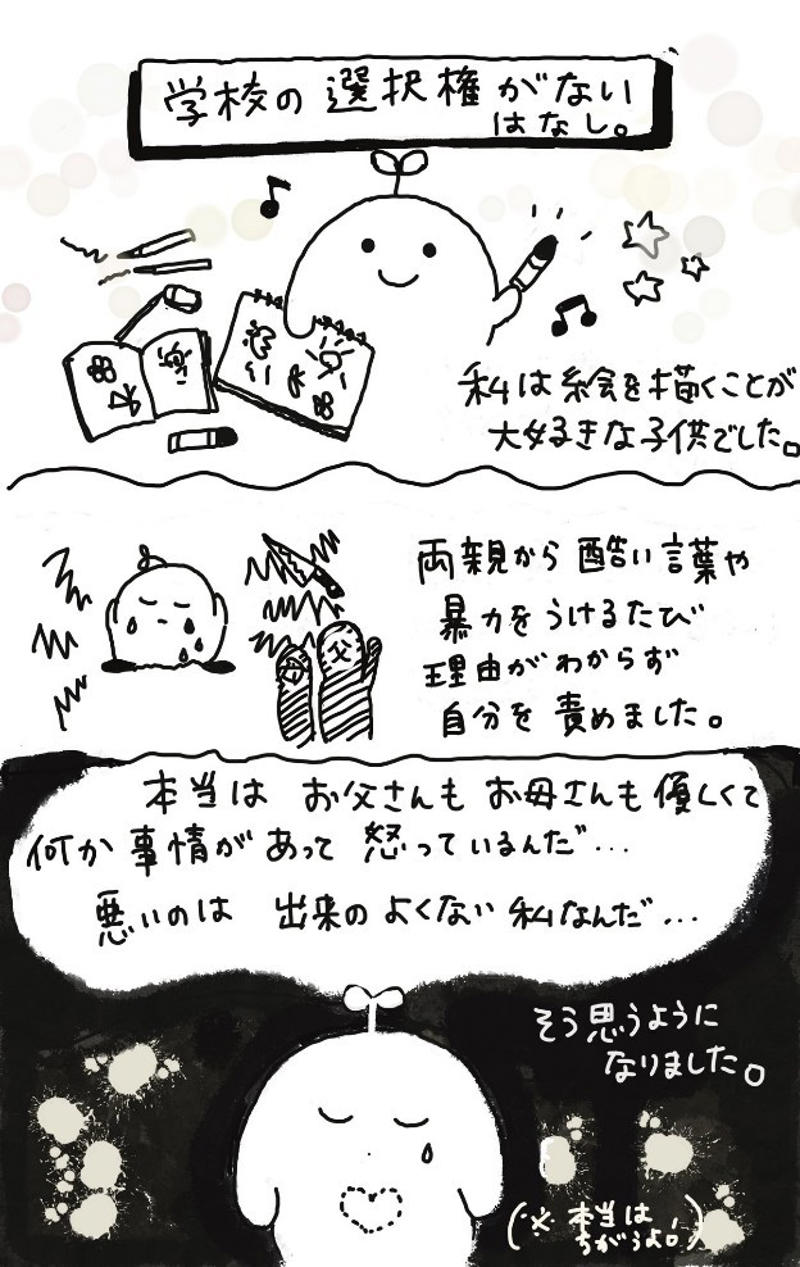 学校の選択権がない
はなし。
私は絵を描くことが
大好きな子供でした。
両親から酷い言葉や
暴力をうけるたび
理由がわからず
自分を責めました。
母
父
本当はお父さんもお母さんも優しくて
何か事情があって怒っているんだ…
悪いのは出来のよくない私なんだ…
そう思うように
なりました。
(※本当は
ちがうよ!)